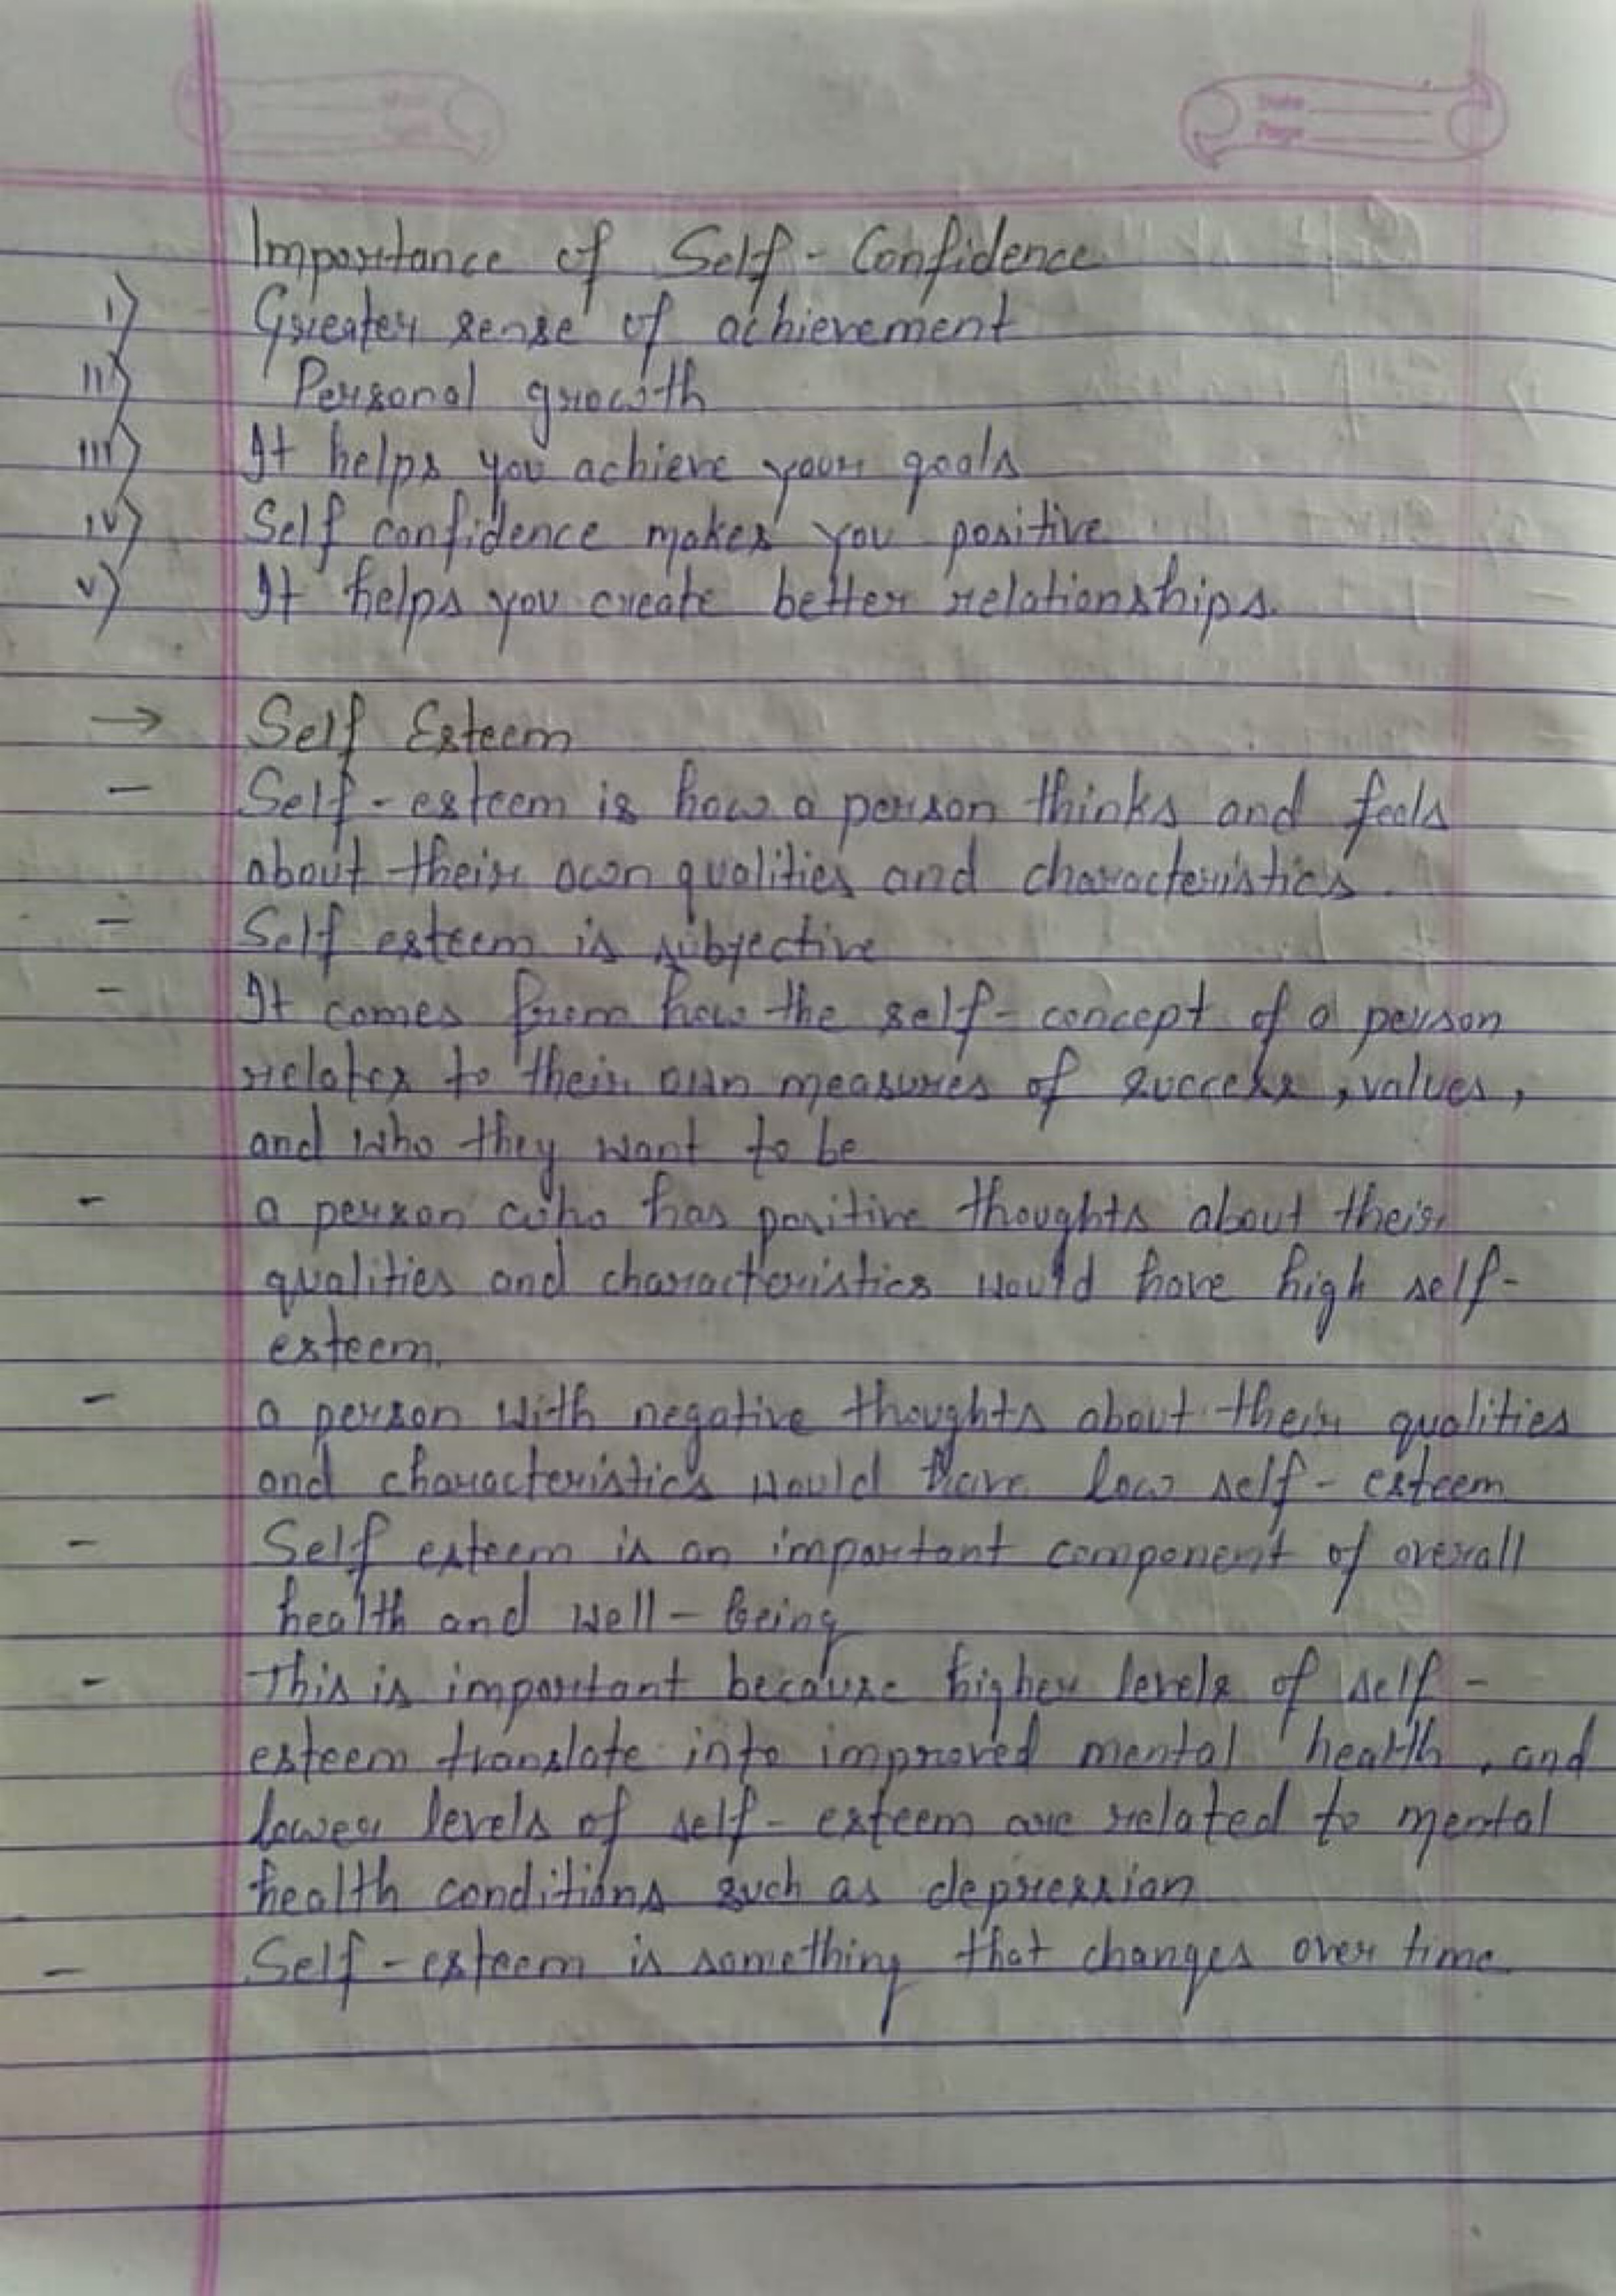 Date
Page
Importance of Self-Confidence
i) Greater sense of achievement
ii) Personal growth
iii) It helps you achieve your goals
iv) Self confidence makes you positive
v) It helps you create better relationships.
→ Self Esteem
- Self-esteem is how a person thinks and feels
about their own qualities and characteristics.
- Self esteem is subjective
- It comes from how the self-concept of a person
relates to their own measures of success, values,
and who they want to be
- a person who has positive thoughts about their
qualities and characteristics would have high self-
esteem.
- a person with negative thoughts about their qualities
and characteristics would have low self-esteem
- Self esteem is an important component of overall
health and well-being
- This is important because higher levels of self-
esteem translate into improved mental health, and
lower levels of self-esteem are related to mental
health conditions such as depression
- Self-esteem is something that changes over time